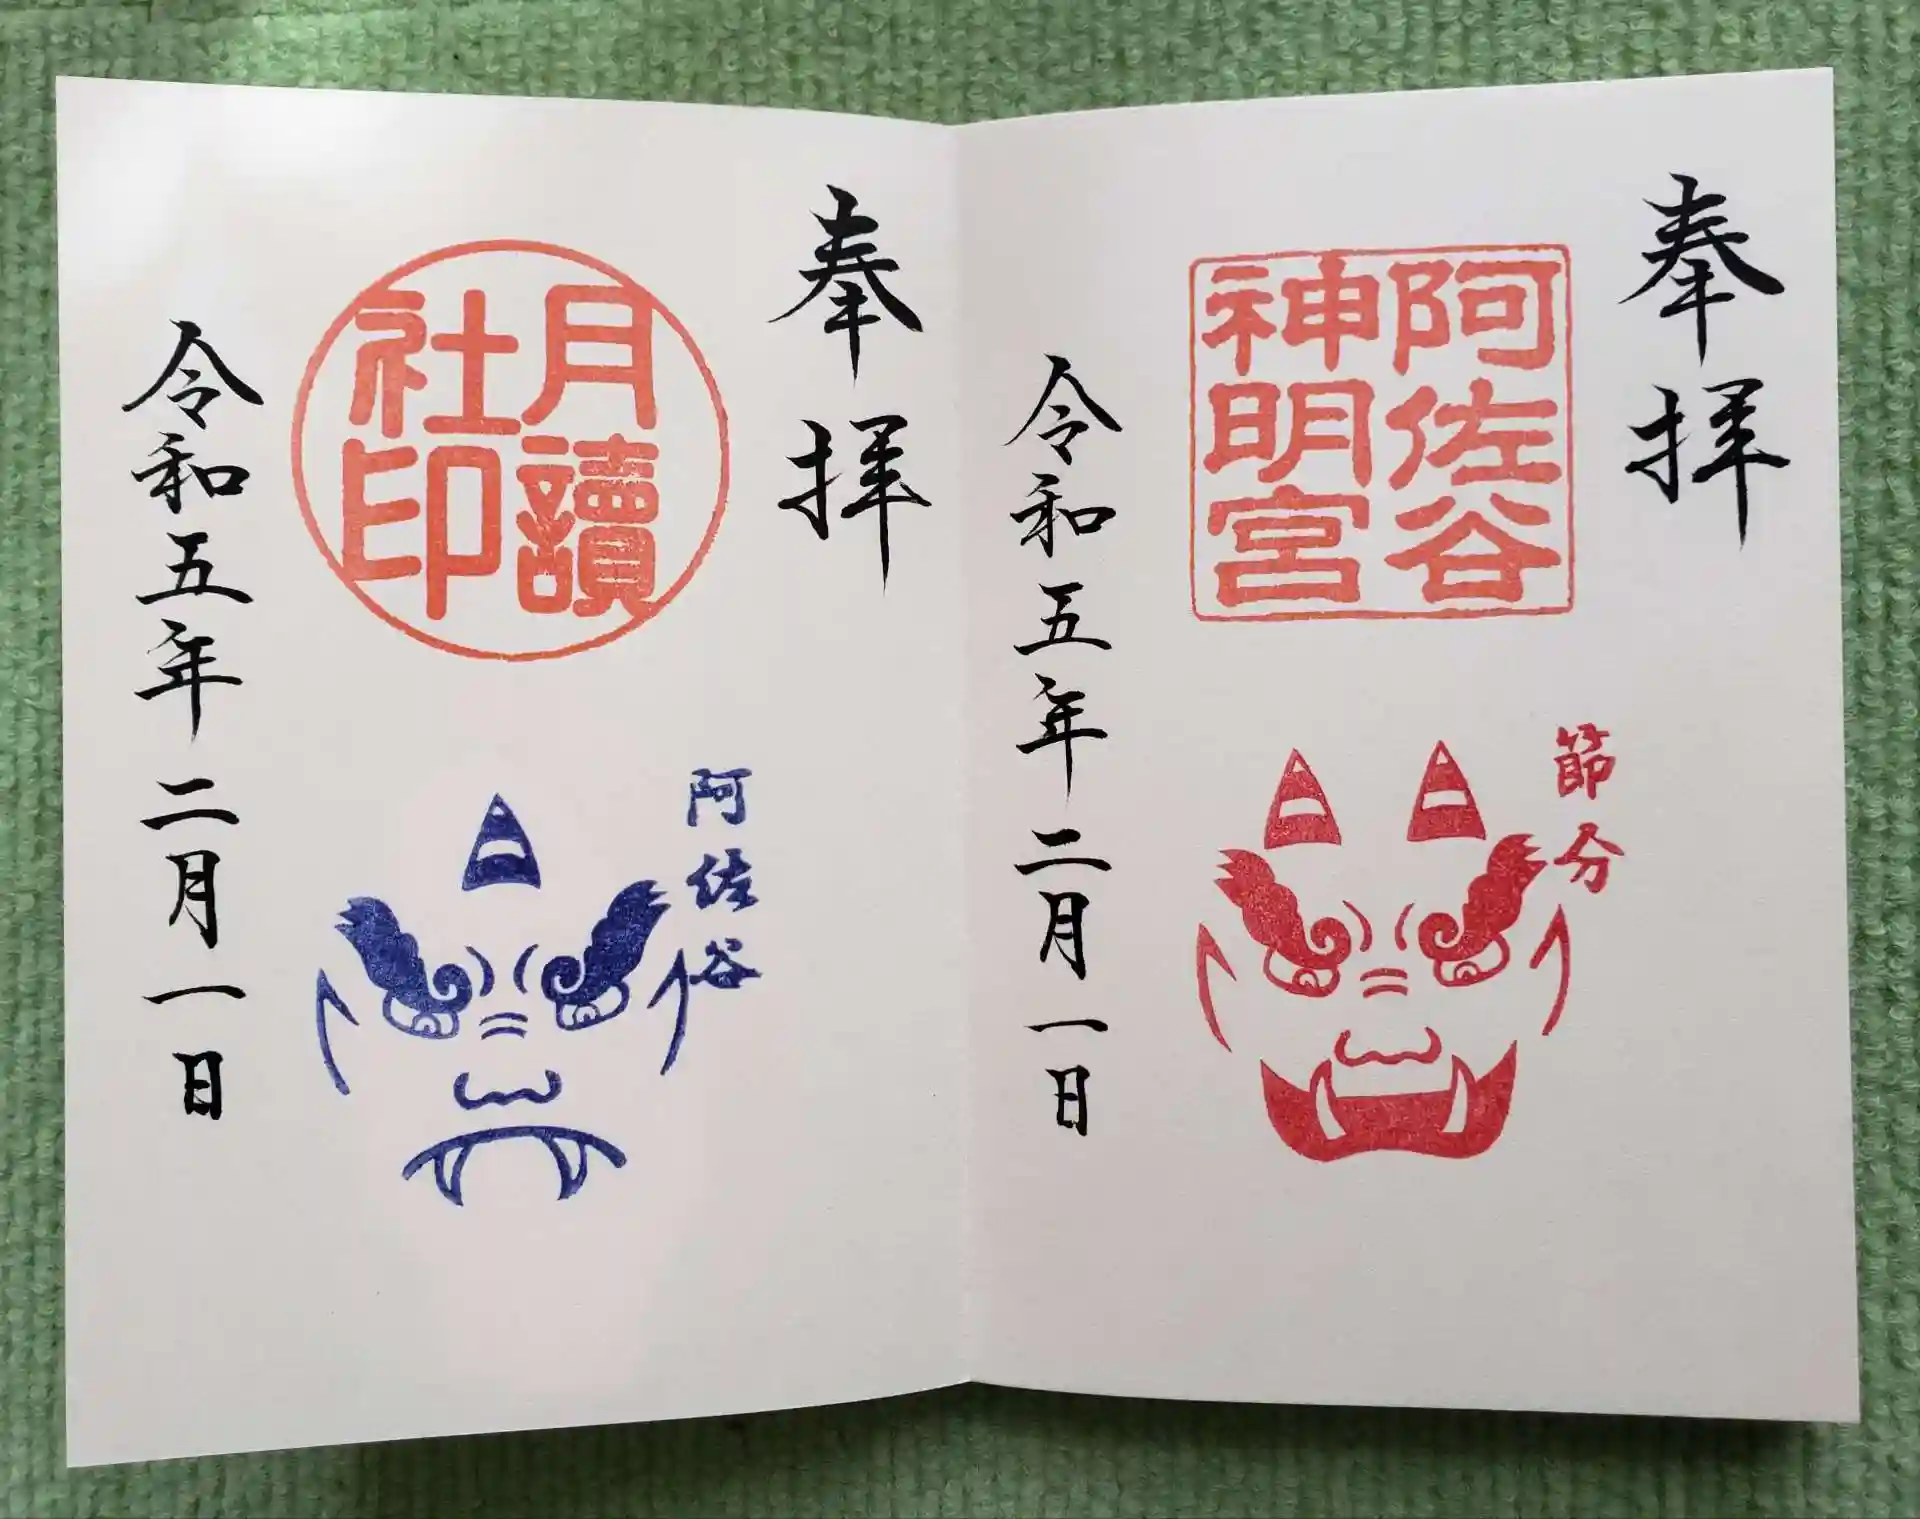 奉拝
阿佐谷
神明宮
節分
令和五年二月一日
奉拝
月讀
社印
阿佐谷
令和五年二月一日